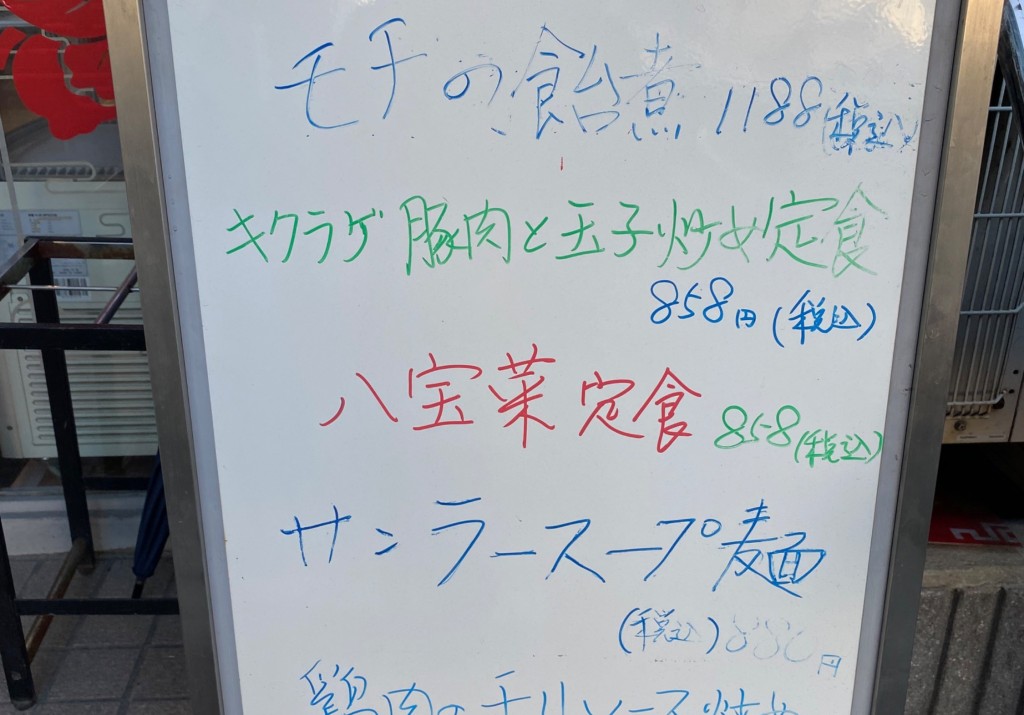 モチの飴煮 1188(税込)
キクラゲ豚肉と玉子炒め定食
858円(税込)
八宝菜定食 858(税込)
サンラースープ麺
(税込)880円
鶏肉のチリソース炒め